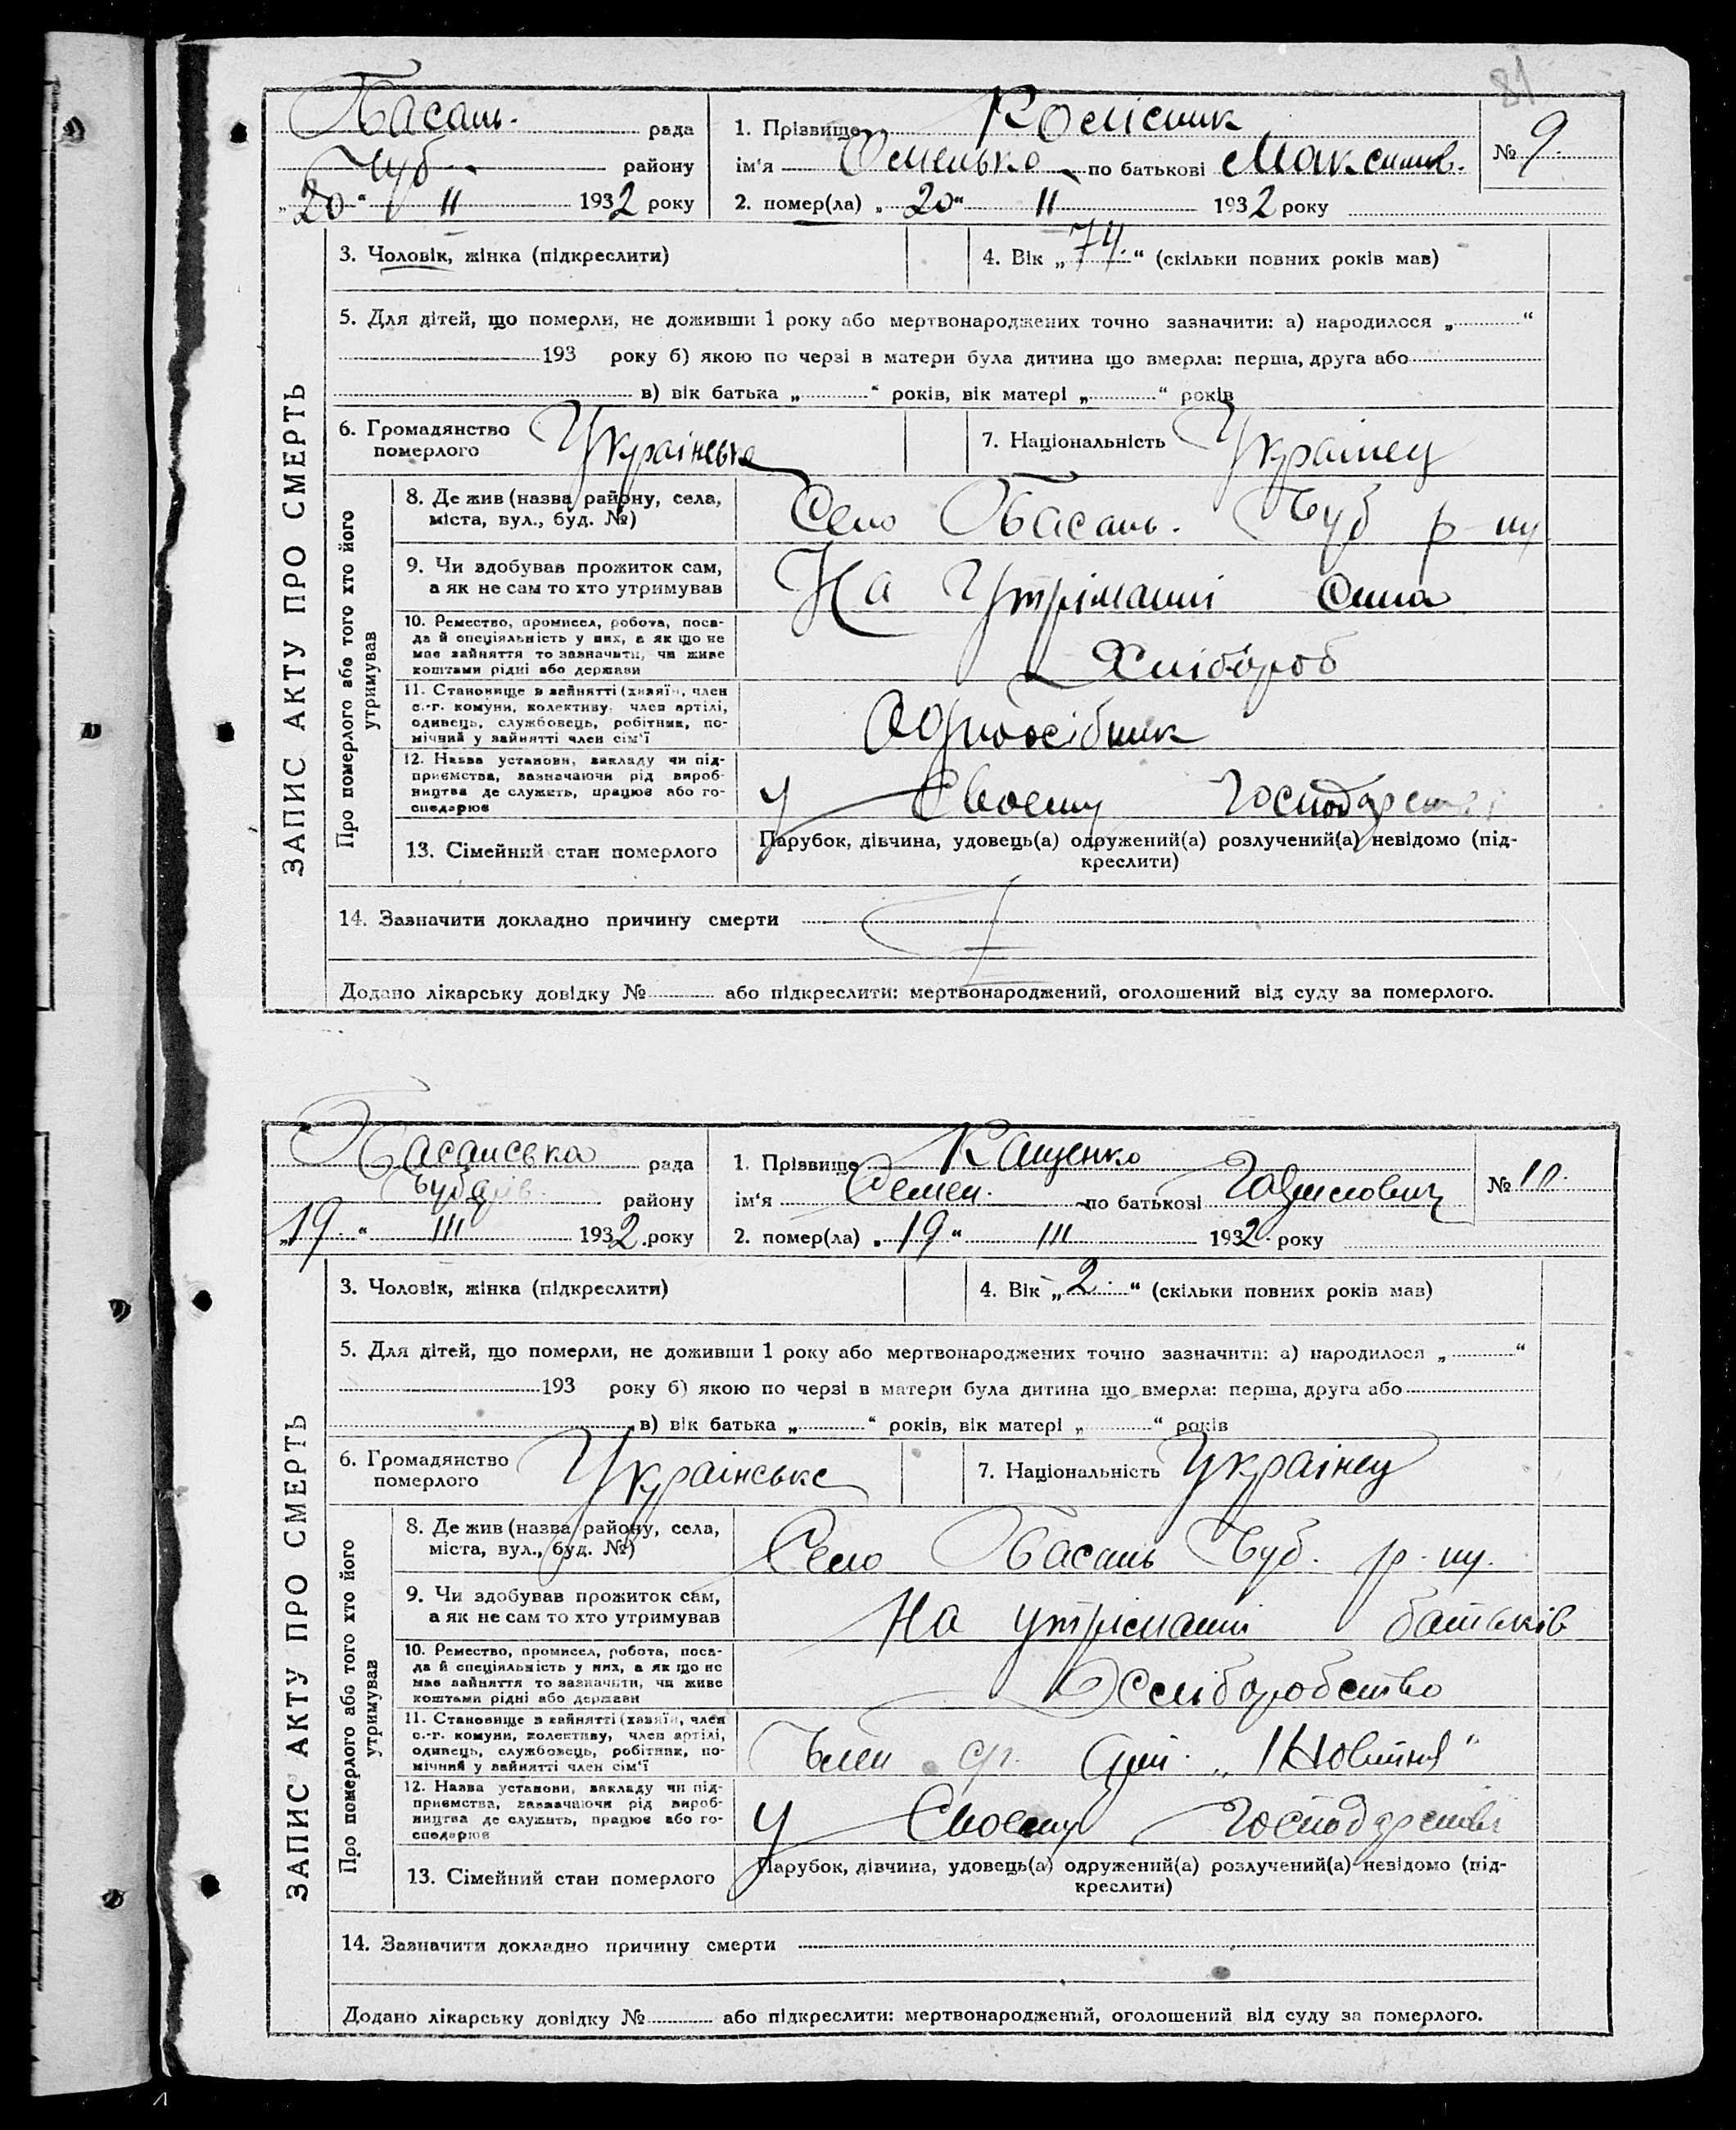 81
Басань. рада
Чуб. району
„20“ II 1932 року
1. Прізвище Колісник
ім'я Оменько по батькові Максимов.
2. помер(ла) „20“ II 1932 року
№ 9.
ЗАПИС АКТУ ПРО СМЕРТЬ
3. Чоловік, жінка (підкреслити)
4. Вік „74.“ (скільки повних років мав)
5. Для дітей, що померли, не доживши 1 року або мертвонароджених точно зазначити: а) народилося „ “
193 року б) якою по черзі в матери була дитина що вмерла: перша, друга або
в) вік батька „ “ років, вік матері „ “ років
6. Громадянство
померлого
Українське
7. Національність Українец
Про померлого або того хто його
утримував
8. Де жив (назва району, села,
міста, вул., буд. №)
Село Басань. Чуб р-ну
9. Чи здобував прожиток сам,
а як не сам то хто утримував
На Утріманні Сина
10. Ремество, промисел, робота, поса-
да й спеціяльність у них, а як що не
має зайняття то зазначити, чи живе
коштами рідні або держави
Хлібороб
11. Становище в зайнятті (хазяїн, член
с.-г. комуни, колективу, член артілі,
одинець, службовець, робітник, по-
мічний у зайнятті член сім'ї
Одноосібник
12. Назва установи, закладу чи під-
приємства, зазначаючи рід вироб-
ництва де служить, працює або го-
сподарює
У Своему Господарстві
13. Сімейний стан померлого
Парубок, дівчина, удовець(а) одружений(а) розлучений(а) невідомо (під-
креслити)
14. Зазначити докладно причину смерти
Додано лікарську довідку № або підкреслити: мертвонароджений, оголошений від суду за померлого.
Басанська рада
Чубарів. району
„19.“ III 1932. року
1. Прізвище Кащенко
ім'я Семен. по батькові Гаврилович
2. помер(ла) „19“ III 1932. року
№ 10.
ЗАПИС АКТУ ПРО СМЕРТЬ
3. Чоловік, жінка (підкреслити)
4. Вік „2.“ (скільки повних років мав)
5. Для дітей, що померли, не доживши 1 року або мертвонароджених точно зазначити: а) народилося „ “
193 року б) якою по черзі в матери була дитина що вмерла: перша, друга або
в) вік батька „ “ років, вік матері „ “ років
6. Громадянство
померлого
Українське
7. Національність Українец
Про померлого або того хто його
утримував
8. Де жив (назва району, села,
міста, вул., буд. №)
Село Басань Чуб. р-ну.
9. Чи здобував прожиток сам,
а як не сам то хто утримував
На утріманні батьків
10. Ремество, промисел, робота, поса-
да й спеціяльність у них, а як що не
має зайняття то зазначити, чи живе
коштами рідні або держави
Хліборобство
11. Становище в зайнятті (хазяїн, член
с.-г. комуни, колективу, член артілі,
одинець, службовець, робітник, по-
мічний у зайнятті член сім'ї
Член Арт.
12. Назва установи, закладу чи під-
приємства, зазначаючи рід вироб-
ництва де служить, працює або го-
сподарює
У Своему Господарстві
13. Сімейний стан померлого
Парубок, дівчина, удовець(а) одружений(а) розлучений(а) невідомо (під-
креслити)
14. Зазначити докладно причину смерти
Додано лікарську довідку № або підкреслити: мертвонароджений, оголошений від суду за померлого.